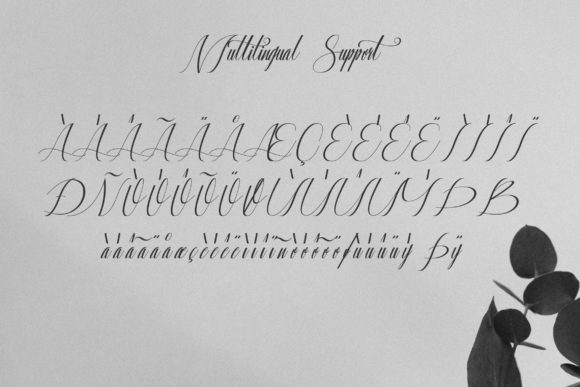 Multilingual Support
ÀÁÂÃÄÅÆÇÈÉÊËÌÍÎÏ
ÐÑÒÓÔÕÖØÙÚÛÜÝÞß
àáâãäåæçèéêëìíîïñòóôõöøùúûüý þÿ